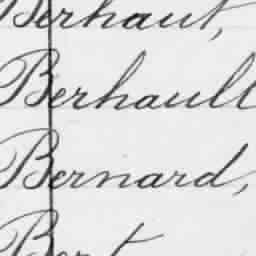 Berhaut,
Berhault
Bernard,